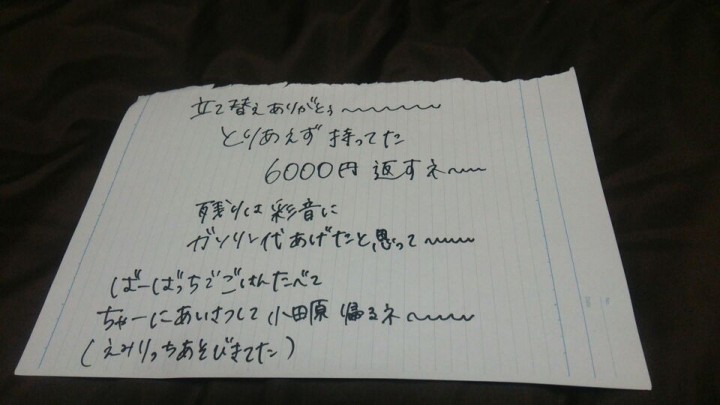 立て替えありがとう〜〜〜
とりあえず持ってた
6000円 返すネ〜〜
残りは彩音に
ガソリン代あげたと思って〜〜〜
ばーばっちでごはんたべて
ちゃーにあいさつして小田原 帰るネ〜〜〜
(えみりっちあそびきてた)